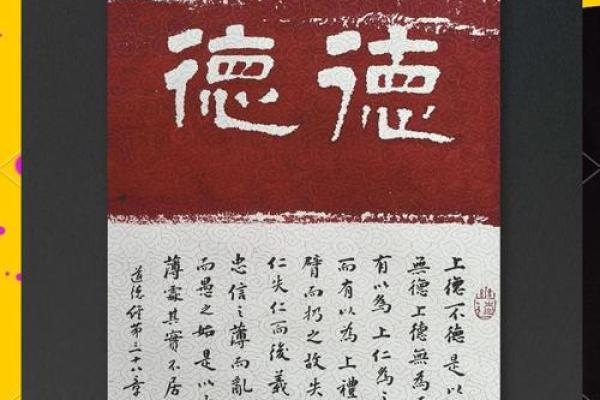 德德
上德不德是以
無德上德無為
有以為上仁為
而有以為上禮
臂而扔之故失
仁失仁而後義
忠信之薄而亂
而愚之始是以
薄處其實不居
道德經第三十八章